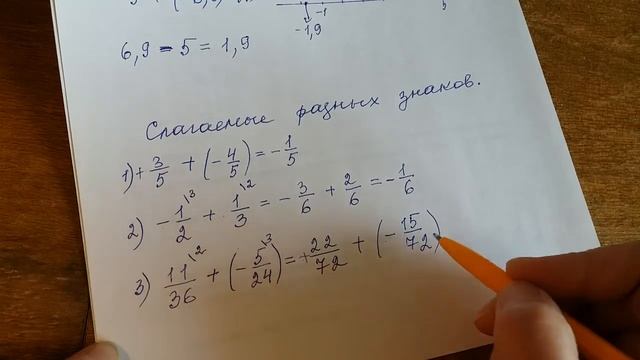 -1
-1,9
6,9 - 5 = 1,9
Слагаемые разных знаков.
1) + 3/5 + (- 4/5) = - 1/5
2) - 1/2 \3 + 1/3 \2 = - 3/6 + 2/6 = - 1/6
3) 11/36 \2 + (- 5/24 \3) = + 22/72 + (- 15/72)